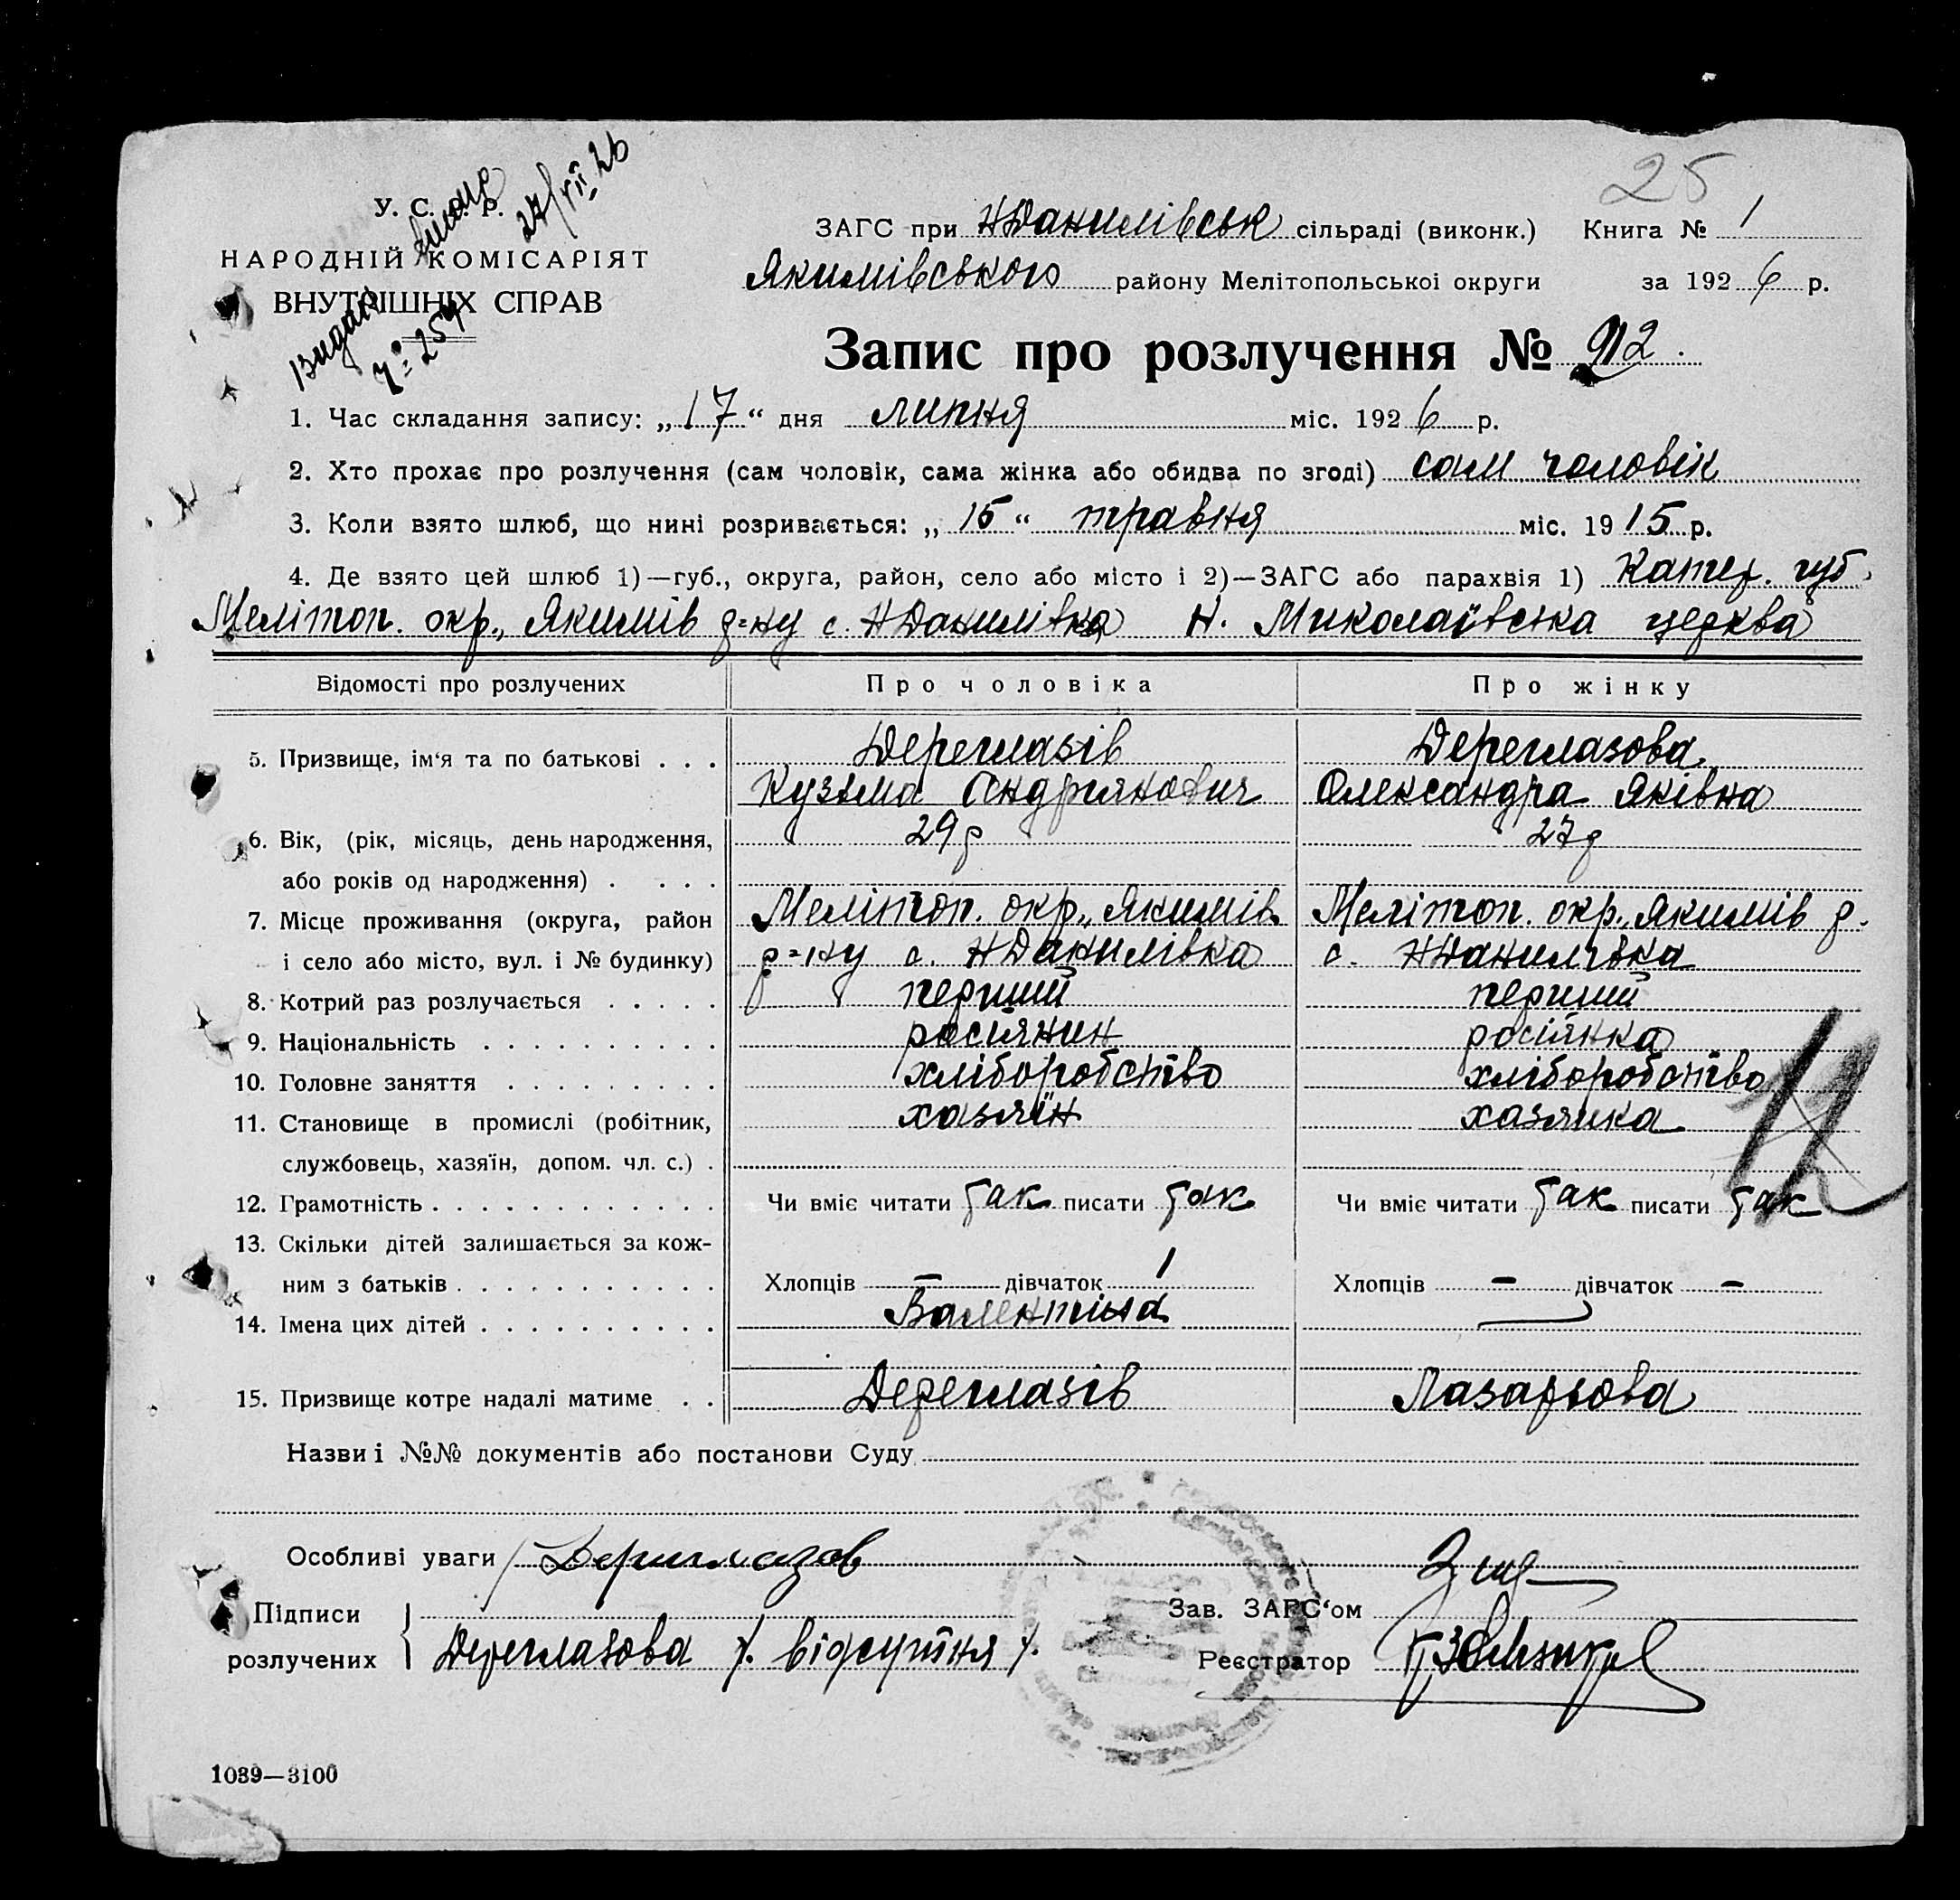 25
У. С. Р. Р.
НАРОДНІЙ КОМІСАРІЯТ
ВНУТРІШНІХ СПРАВ
Видан
27/XII 26
№ 254
ЗАГС при НДанилівськ сільраді (виконк.) Книга № 1
Якимівського району Мелітопольської округи за 1926 р.
Запис про розлучення № 12.
1. Час складання запису: „17“ дня липня міс. 1926 р.
2. Хто прохає про розлучення (сам чоловік, сама жінка або обидва по згоді) сам чоловік
3. Коли взято шлюб, що нині розривається: „15“ травня міс. 1915 р.
4. Де взято цей шлюб 1)—губ., округа, район, село або місто і 2)—ЗАГС або парахвія 1) Катер. губ.
Мелітоп. окр., Якимів р=ну с. НДанилівка Н. Миколаївська церква
Відомості про розлучених Про чоловіка Про жінку
5. Призвище, ім'я та по батькові . . . Дереглазів Дереглазова
Кузьма Андріянович Олександра Яківна
6. Вік, (рік, місяць, день народження, 29р 27р
або років од народження) . . . .
7. Місце проживання (округа, район Мелітоп. окр., Якимів Мелітоп. окр., Якимів р.
і село або місто, вул. і № будинку) р=ну с. НДанилівка с. НДанилівка
8. Котрий раз розлучається . . . . . перший перший
9. Національність . . . . . . . . . . росіянин росіянка
10. Головне заняття . . . . . . . . . хліборобство хліборобство
11. Становище в промислі (робітник, хазяїн хазяйка
службовець, хазяїн, допом. чл. с.) .
12
12. Грамотність . . . . . . . . . . . . Чи вміє читати так писати так Чи вміє читати так писати так
13. Скільки дітей залишається за кож-
ним з батьків . . . . . . . . . . . Хлопців — дівчаток 1 Хлопців — дівчаток —
14. Імена цих дітей . . . . . . . . . . Валентина —
15. Призвище котре надалі матиме . . Дереглазів Лазарьова
Назви і №№ документів або постанови Суду
Особливі уваги Дериглазов
Підписи Зав. ЗАГС‘ом
розлучених Дереглазова /. відсутня /. Реєстратор
1039—3100